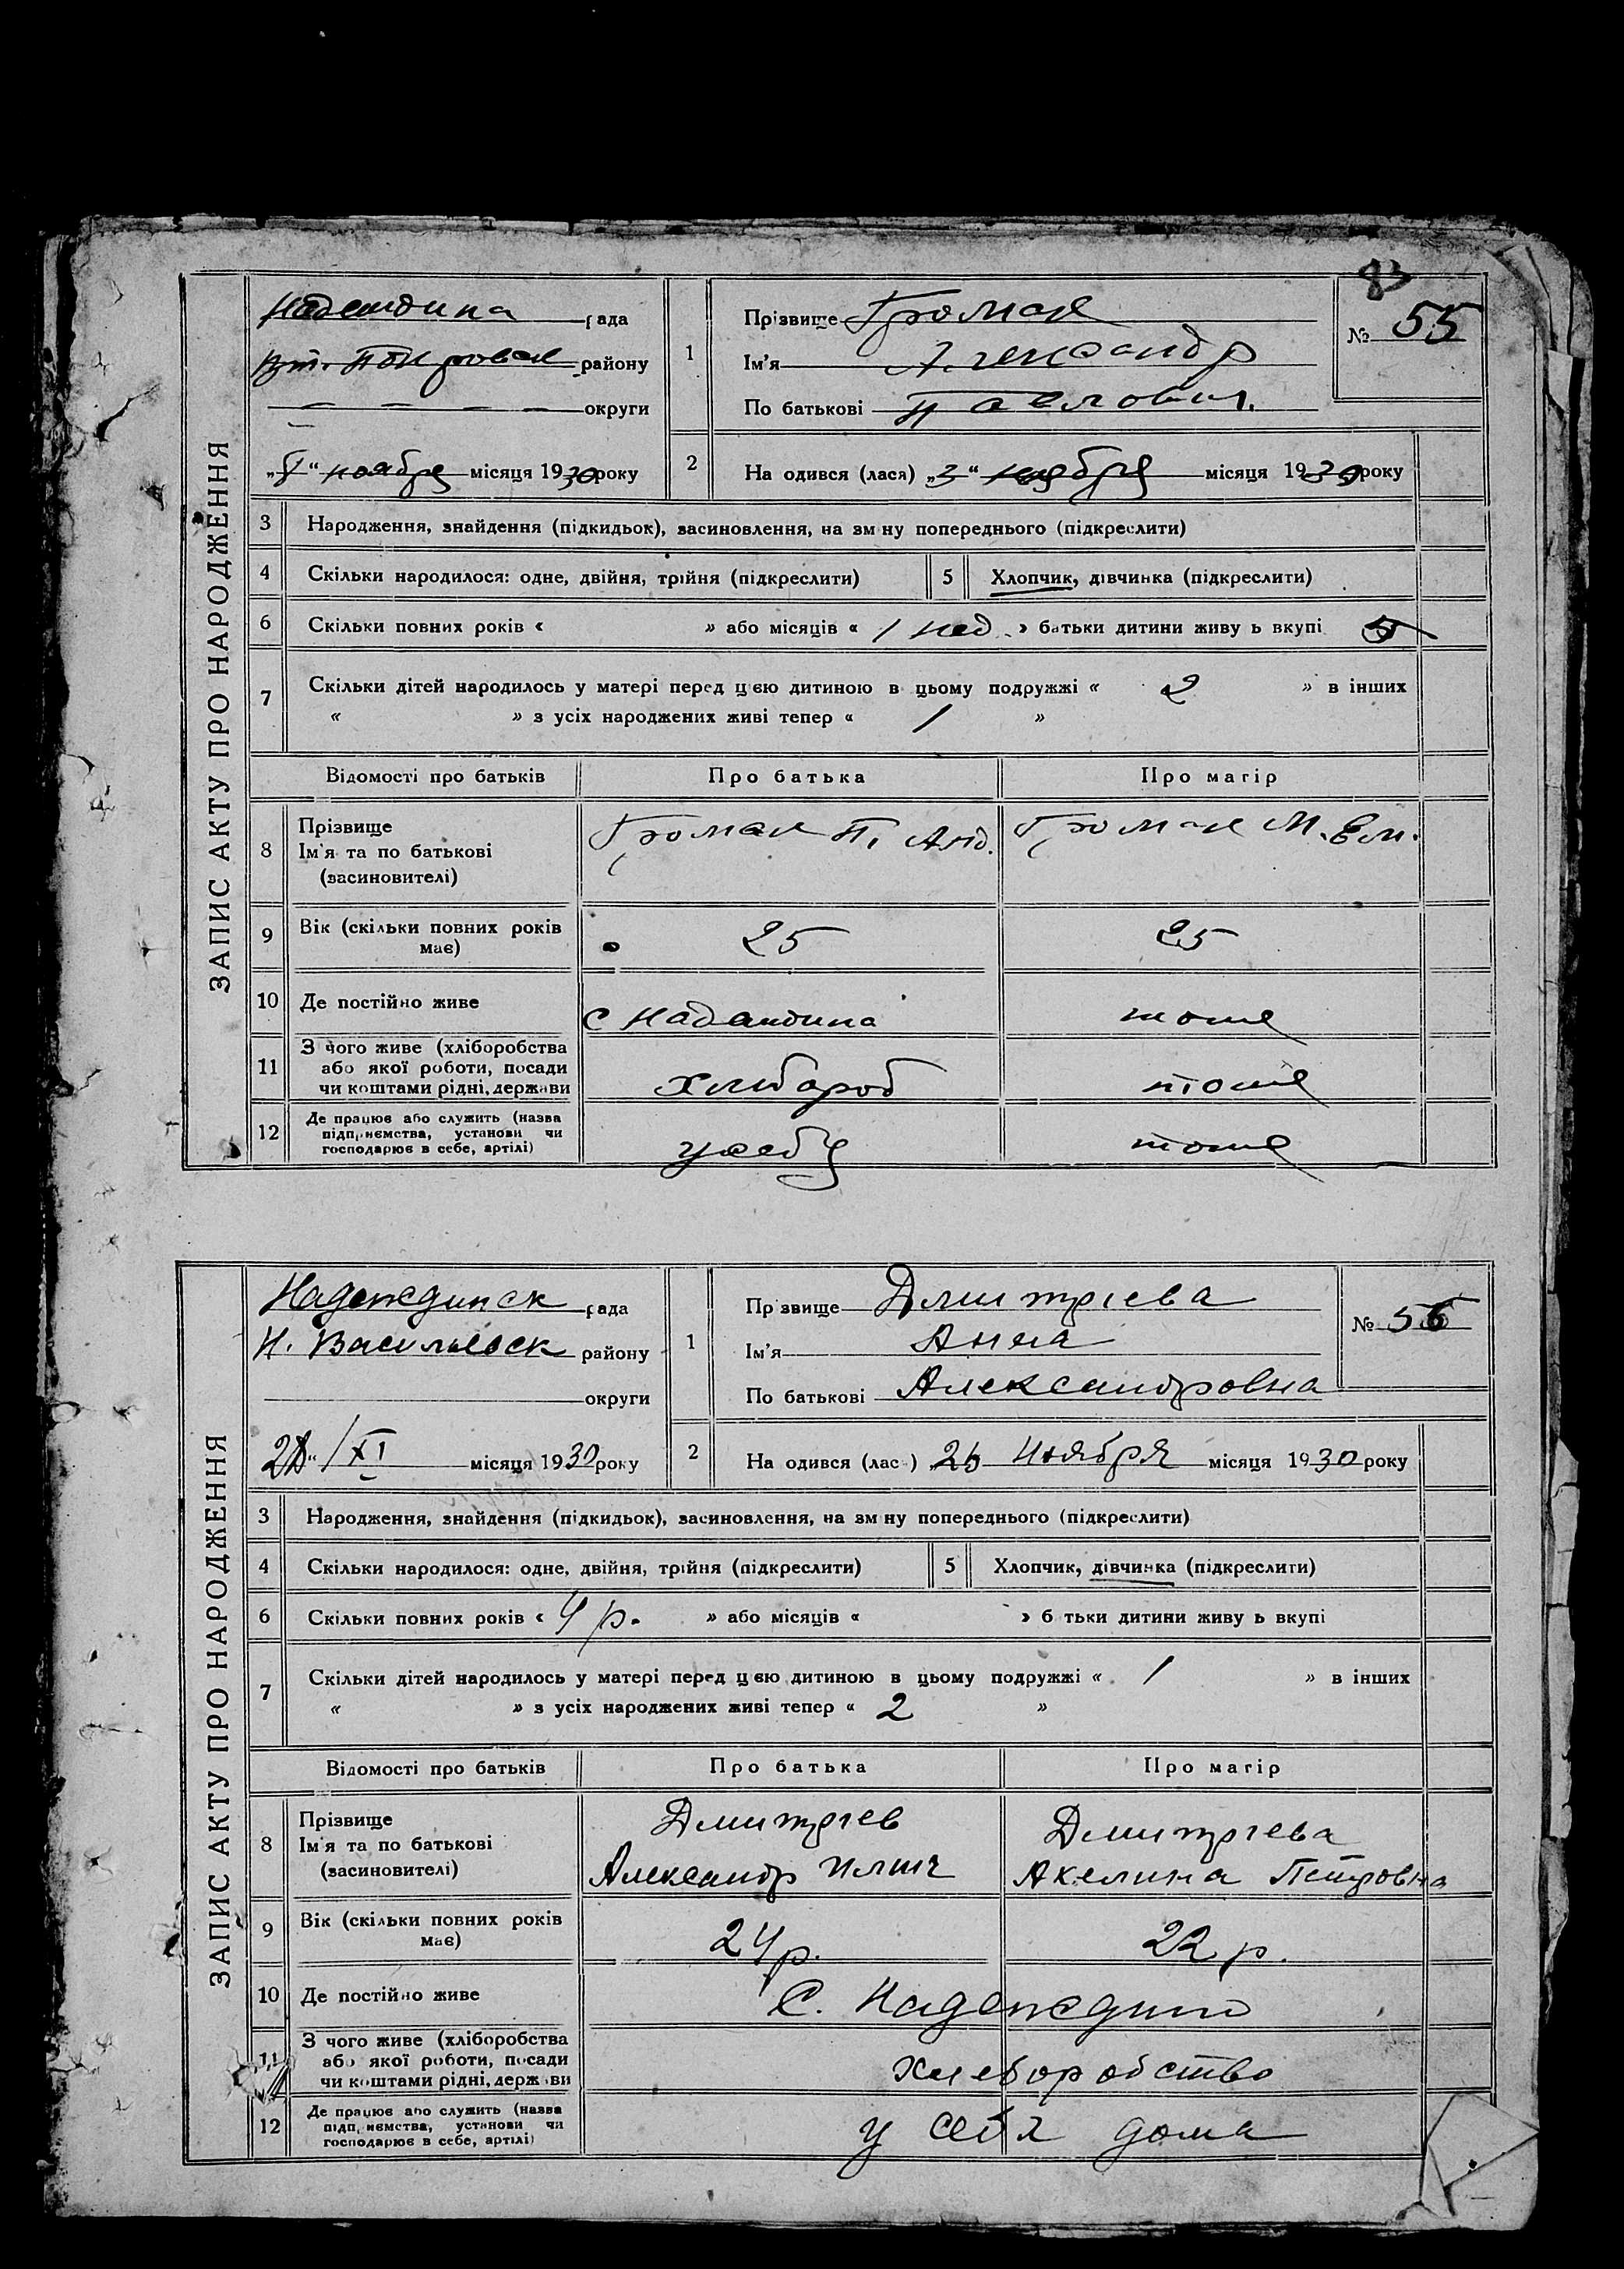 83
ЗАПИС АКТУ ПРО НАРОДЖЕННЯ
Надеждина рада
району
округи
ноября місяця 1930 року
1
Прізвище Громак
Ім'я Александр
По батькові Павлович
№ 55
2
На одився (лася) „3“ ноября місяця 1930 року
3 Народження, знайдення (підкидьок), засиновлення, на зм ну попереднього (підкреслити)
4 Скільки народилося: одне, двійня, трійня (підкреслити)
5 Хлопчик, дівчинка (підкреслити)
6 Скільки повних років « » або місяців « 1 нед. » батьки дитини живу ь вкупі
7 Скільки дітей народилось у матері перед цєю дитиною в цьому подружжі « 2 » в інших
« » з усіх народжених живі тепер « 1 »
Відомості про батьків Про батька Про матір
8 Прізвище
Ім'я та по батькові
(засиновителі)
Громак П. Анд. Громак М. Ем.
9 Вік (скільки повних років
має)
25 25
10 Де постійно живе
с Надеждина тоже
11 З чого живе (хліборобства
або якої роботи, посади
чи коштами рідні, держави
хлебароб тоже
12 Де працює або служить (назва
підприємства, установи чи
господарює в себе, артілі)
у себя тоже
ЗАПИС АКТУ ПРО НАРОДЖЕННЯ
Надеждинск рада
Н. Васильевск району
округи
/XI місяця 1930 року
1
Пр звище Дмитриева
Ім'я Анна
По батькові Александровна
№ 56
2
На одився (лас ) ноября місяця 1930 року
3 Народження, знайдення (підкидьок), засиновлення, на зм ну попереднього (підкреслити)
4 Скільки народилося: одне, двійня, трійня (підкреслити)
5 Хлопчик, дівчинка (підкреслити)
6 Скільки повних років « 4 р. » або місяців « » б тьки дитини живу ь вкупі
7 Скільки дітей народилось у матері перед цєю дитиною в цьому подружжі « 1 » в інших
« » з усіх народжених живі тепер « 2 »
Відомості про батьків Про батька Про матір
8 Прізвище
Ім'я та по батькові
(засиновителі)
Дмитриев Дмитриева
Александр Ильич Акелина Петровна
9 Вік (скільки повних років
має)
24 р. 22 р.
10 Де постійно живе
С. Надеждино
11 З чого живе (хліборобства
або якої роботи, посади
чи коштами рідні, держ ви
хлеборобство
12 Де працює або служить (назва
підпр иємства, установи чи
господарює в себе, артілі)
у себя дома